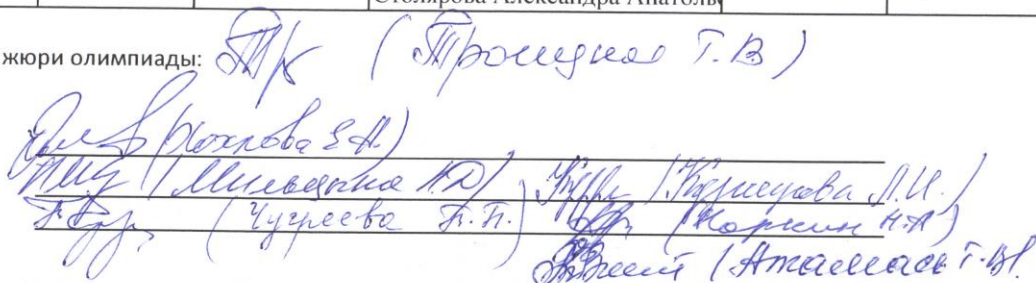 Столярова Александра Анатоль
жюри олимпиады: (Троицкая Т.В)
(Хохлова Е.А.)
(Мильцина Н.Д) (Кузнецова Л.И.)
(Чугреева Т.П.) (Чоркин Н.А)
(Атамась Т.В).